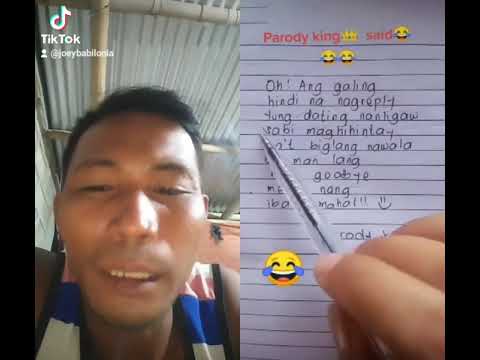 TikTok
@joeybabilonia
Parody king👑 said😂
😂😂
Oh! Ang galing
hindi na nagreply
yung dating nanligaw
sabi maghihintay
biglang nawala
man lang
goodbye
nang
iba mahal!! ☺